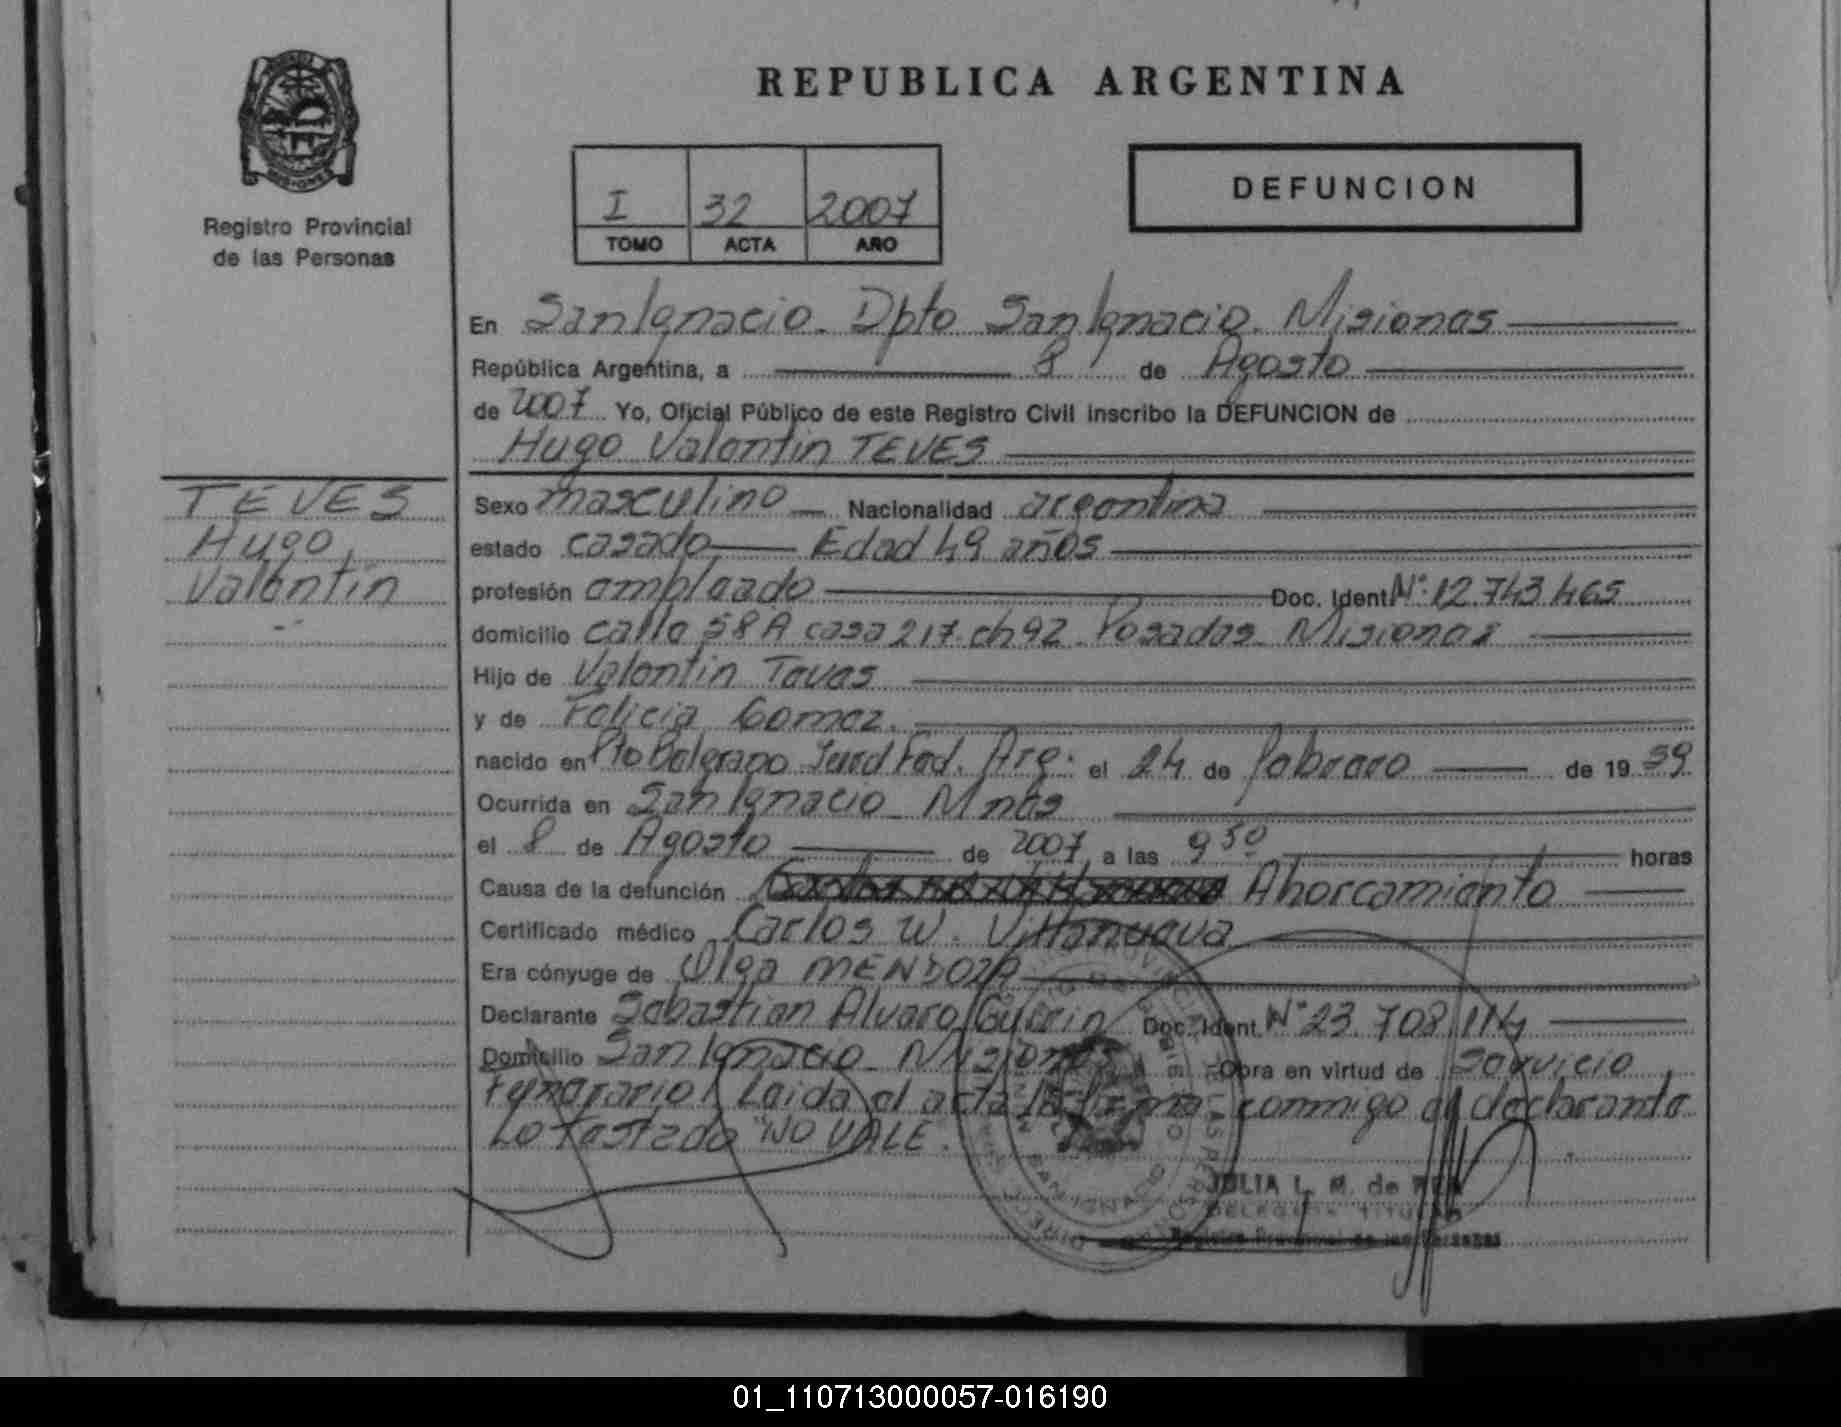 REPUBLICA ARGENTINA
Registro Provincial
de las Personas
I 32 2007
TOMO ACTA AÑO
DEFUNCION
En San Ignacio. Dpto San Ignacio. Misiones
República Argentina, a 8 de Agosto
de 2007 Yo, Oficial Público de este Registro Civil inscribo la DEFUNCION de
Hugo Valentin TEVES
TEVES
Hugo,
Valentin
Sexo masculino Nacionalidad argentina
estado casado Edad 49 años
profesión empleado Doc. Ident. N° 12.743.465
domicilio calle 58A casa 217. ch 92. Posadas. Misiones
Hijo de Valentin Teves
y de Felicia Gomez.
nacido en Pto Belgrano Jurd Fed. Arg. el 24 de febrero de 19
Ocurrida en San Ignacio Mnes
el 8 de Agosto de 2007 a las 9 30 horas
Causa de la defunción Ahorcamiento
Certificado médico Carlos W. Villanueva
Era cónyuge de Olga MENDOZA
Declarante Sebastian Alvaro Guerin Doc. Ident. N° 23.708.114
Domicilio San Ignacio Misiones Obra en virtud de servicio
Funerario. Leida el acta la firma conmigo el declarante
Lo testado "NO VALE".
JULIA L. M. de
DELEGADA TITULAR
Registro Provincial de las Personas
SAN IGNACIO
01_110713000057-016190